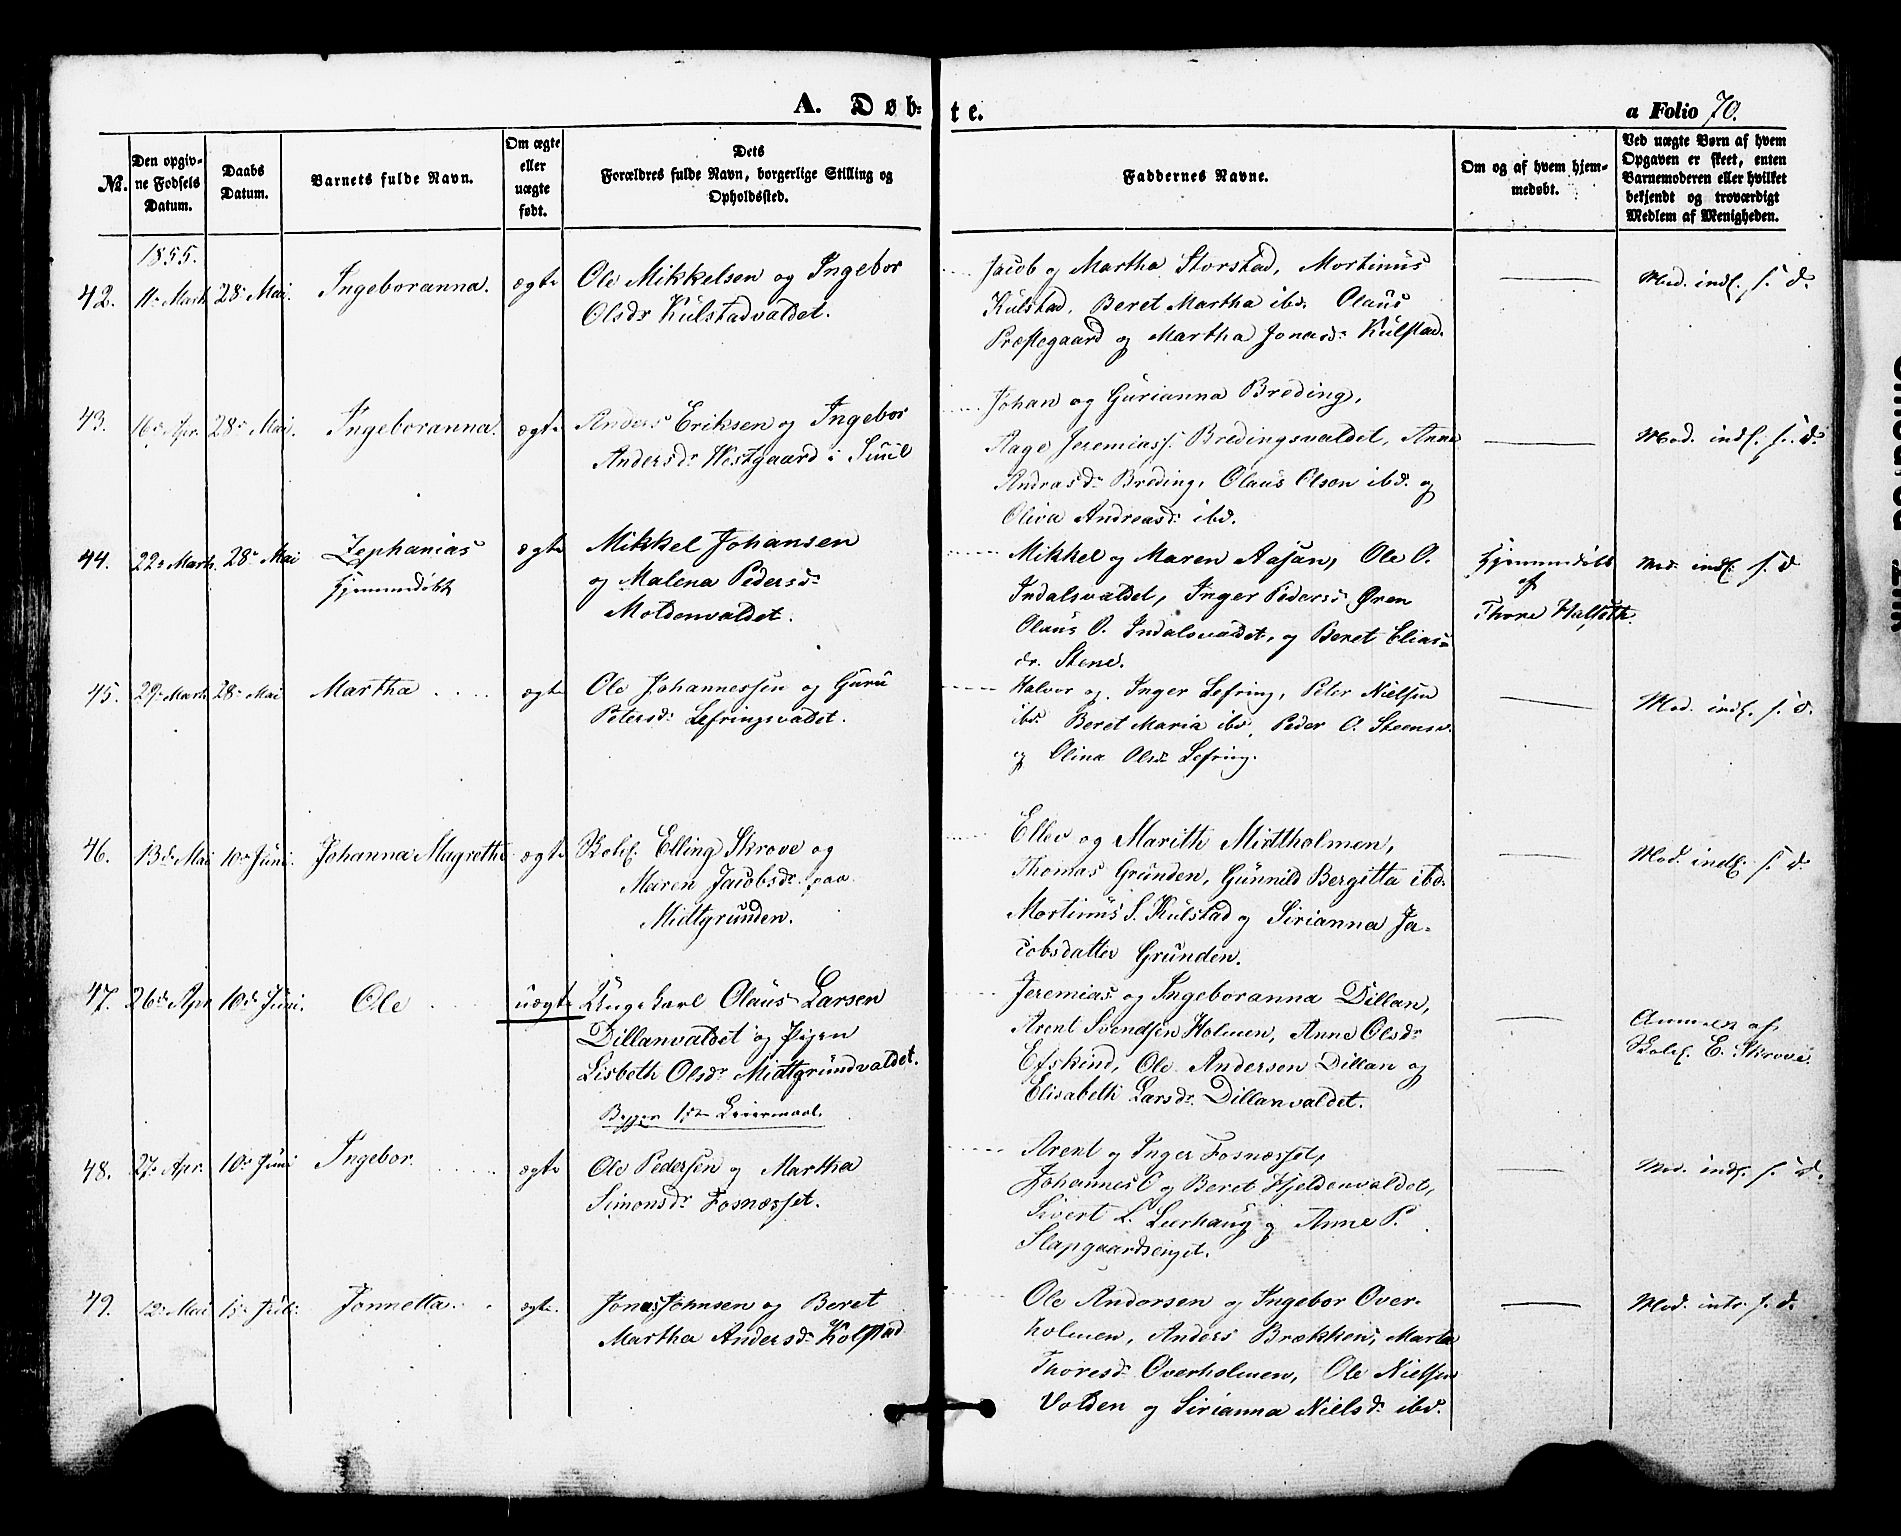 A. Døb-te.
a Folio 70.
№.
Den opgiv-
ne Fødsels
Datum.
Daabs
Datum.
Barnets fulde Navn.
Om ægte
eller
uægte
født.
Dets
Forældres fulde Navn, borgerlige Stilling og
Opholdssted.
Faddernes Navne.
Om og af hvem hjem-
medøbt.
Ved uægte Børn af hvem
Opgaven er skeet, enten
Barnemoderen eller hvilket
bekjendt og troværdigt
Medlem af Menigheden.
1855.
42. 11. Marts 28. Mai. Ingeboranna. ægte
Ole Mikkelsen og Ingebor
Olsdr Kulstadvaldet.
Jacob og Martha Storstad, Mortinus
Kulstad, Beret Martha ibd. Olaus
Præstegaard og Martha Jonasdr. Kulstad.
Mod. indl. s. d.
43. 16. Apr. 28. Mai. Ingeboranna. ægte
Anders Eriksen og Ingebor
Andersdr. Westgaard i Suul
Johan og Gurianna Breding,
Aage Jeremiass. Bredingsvaldet, Anne
Andrasdr. Breding, Olaus Olsen ibd. og
Oliva Andreasdr. ibd.
Mod. indl. s. d.
44. 22. Marts. 28. Mai Zephanias ægte
Hjemmedøbt
Mikkel Johansen
og Malena Pedersdr.
Moldenvaldet.
Mikkel og Maren Aasan, Ole O.
Indalsvaldet, Inger Pedersdr Øren
Olaus O. Indalsvaldet, og Beret Elias-
dr. Stene.
Hjemmedøbt
af
Thore Halseth.
Mod. indl. s. d
45. 29. Marts 28. Mai Martha ægte
Ole Johannessen og Guru
Petersdr. Lefringsvaldet.
Halvor og Inger Lefring, Peter Nielsen
ibd. Beret Maria ibd, Peder O. Steensv.
og Olina Olsdr Lefring.
Mod. indl. s. d.
46. 13de Mai 10de Juni. Johanna Magrethe ægte
Skolel. Elling Skrove og
Maren Jacobsdr. paa
Midtgrunden.
Ellev og Marith Midtholmen,
Thomas Grunden, Gunnild Bergitta ibd.
Mortinus S. Kulstad og Sirianna Ja-
cobsdatter Grunden.
Mod. indl. s. d.
47. 26de Apr 10de Juni. Ole uægte
Ungekarl Olaus Larsen
Dillanvaldet og Pigen
Lisbeth Olsdr Midtgrundvaldet.
Begges 1ste Leiermaal.
Jeremias og Ingeboranna Dillan,
Arent Svendsen Holmen, Anne Olsdr.
Efskind, Ole Andersen Dillan og
Elisabeth Larsdr. Dillanvaldet.
Anmeldt af
Skolel. E. Skrove.
48. 27. Apr. 10de Juni Ingebor. ægte
Ole Pedersen og Martha
Simonsdr. Fosnæsset.
Arent og Inger Fosnæsset,
Johannes O og Beret Hjeldenvaldet,
Sivert L. Leerhaug og Anne P.
Slapgaardsenget.
Mod. indl. s. d.
49. 12. Mai Jonnetta. ægte.
Jonas Johnsen og Beret
Martha Andersdr. Kolstad
Ole Andersen og Ingebor Over-
holmen, Anders Brækken, Marta
Thoresdr. Overholmen, Ole Nielsen
Volden og Sirianna Nielsdr. ibd.
Mod. intr. s. d.